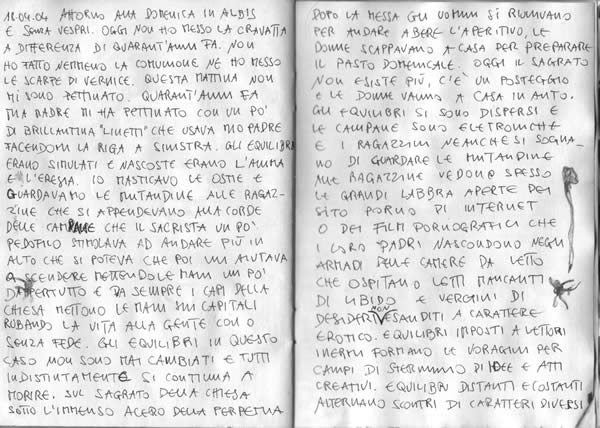 18.04.04 ATTORNO ALLA DOMENICA IN ALBIS
E SENZA VESPRI. OGGI NON HO MESSO LA CRAVATTA
A DIFFERENZA DI QUARANT'ANNI FA. NON
HO FATTO NEMMENO LA COMUNIONE NE HO MESSO
LE SCARPE DI VERNICE. QUESTA MATTINA NON
MI SONO PETTINATO. QUARANT'ANNI FA
MIA MADRE MI HA PETTINATO CON UN PO'
DI BRILLANTINA "LINETTI" CHE USAVA MIO PADRE
FACENDOMI LA RIGA A SINISTRA. GLI EQUILIBRI
ERANO SIMULATI E NASCOSTE ERANO L'ANIMA
E L'ERESIA. IO MASTICAVO LE OSTIE E
GUARDAVAMO LE MUTANDINE ALLE RAGAZ-
ZINE CHE SI APPENDEVANO ALLA CORDE
DELLE CAMPANE CHE IL SACRISTA UN PO'
PEDOFILO STIMOLAVA AD ANDARE PIÙ IN
ALTO CHE SI POTEVA CHE POI LUI AIUTAVA
A SCENDERE METTENDOLE MANI UN PO'
DAPPERTUTTO E DA SEMPRE I CAPI DELLA
CHIESA METTONO LE MANI SUI CAPITALI
RUBANDO LA VITA ALLA GENTE CON O
SENZA FEDE. GLI EQUILIBRI IN QUESTO
CASO NON SONO MAI CAMBIATI E TUTTI
INDISTINTAMENTE SI CONTINUA A
MORIRE. SUL SAGRATO DELLA CHIESA
SOTTO L'IMMENSO ACERO DELLA PERPETUA
DOPO LA MESSA GLI UOMINI SI RIUNIVANO
PER ANDARE A BERE L'APERITIVO, LE
DONNE SCAPPAVANO A CASA PER PREPARARE
IL PASTO DOMENICALE. OGGI IL SAGRATO
NON ESISTE PIÙ, C'È UN POSTEGGIO
E LE DONNE VANNO A CASA IN AUTO.
GLI EQUILIBRI SI SONO DISPERSI E
LE CAMPANE SONO ELETRONICHE
E I RAGAZZINI NEANCHE SI SOGNA-
NO DI GUARDARE LE MUTANDINE
ALLE RAGAZZINE VEDONO SPESSO
LE GRANDI LABBRA APERTE DEI
SITO PORNO DI INTERNET
O DEI FILM PORNOGRAFICI CHE
I LORO PADRI NASCONDONO NEGLI
ARMADI DELLE CAMERE DA LETTO
CHE OSPITANO LETTI MANCANTI
DI LIBIDO E VERGINI DI
DESIDERI NON ESAUDITI A CARATTERE
EROTICO. EQUILIBRI IMPOSTI A LETTORI
INERMI FORMANO LE VORAGINI PER
CAMPI DI STERMINIO DI IDEE E ATTI
CREATIVI. EQUILIBRI DISTANTI E COSTANTI
ALTERNANO SCONTRI DI CARATTERI DIVERSI